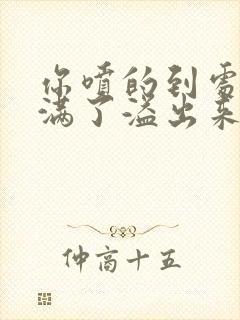 你喷的到处
满了溢出来
仲高十五